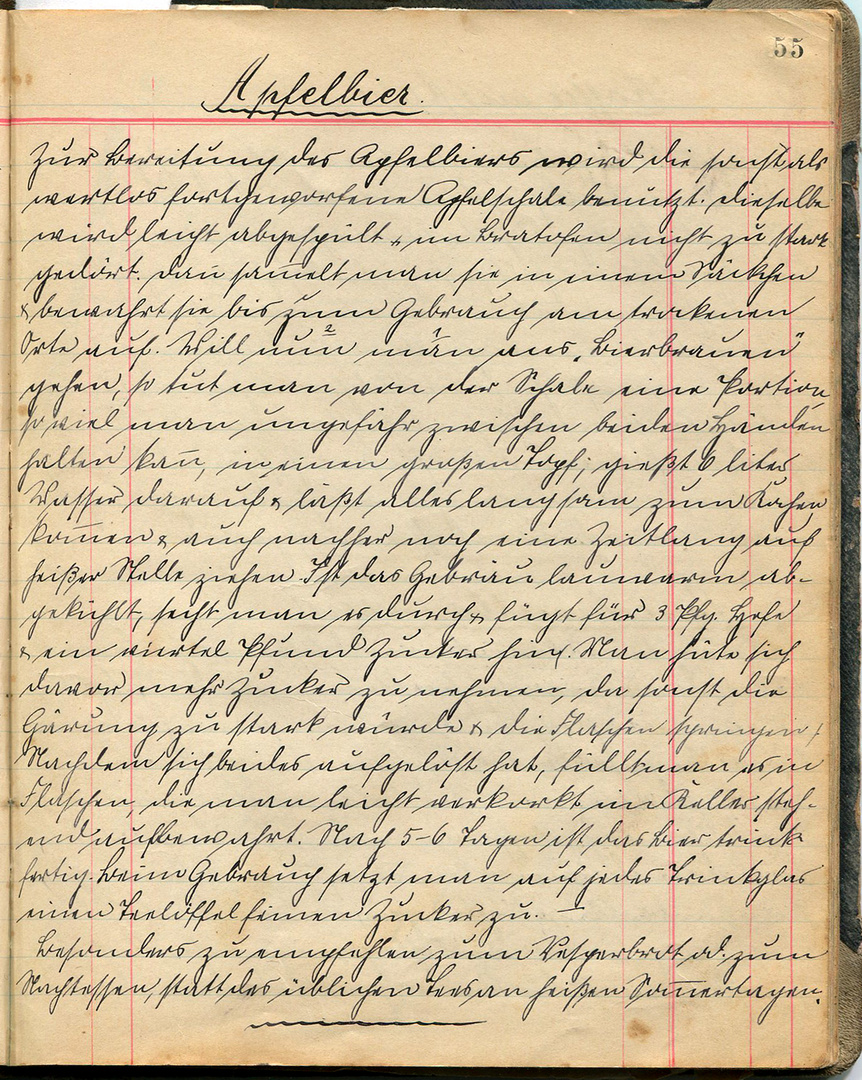 55
Apfelbier.
Zur Bereitung des Apfelbiers wird die sonst als
wertlos fortgeworfene Apfelschale benutzt. Dieselbe
wird leicht abgespült & im Bratofen nicht zu stark
gedört. Dan̄ sam̄elt man sie in einem Säckchen
& bewahrt sie bis zum Gebrauch am trockenen
Orte auf. Will nun 2 man 1 ans „Bierbrauen"
gehen, so tut man von der Schale eine Portion,
so viel man ungefähr zwischen beiden Händen
halten kan̄, in einen großen Topf; gießt 6 liter
Wasser darauf & läßt alles langsam zum Kochen
kom̄en & auch nachher noch eine Zeitlang auf
heißer Stelle ziehen Ist das Gebräu lauwarm ab-
gekühlt, seiht man es durch & fügt für 3 Pfg. Hefe
& ein viertel Pfund Zucker hinz. Man hüte sich
davor mehr Zucker zu nehmen, da sonst die
Gärung zu stark würde & die Flaschen springen!
Nachdem sich beides aufgelöst hat, füllt man es in
Flaschen, die man leicht verkorkt im Keller steh-
end aufbewahrt. Nach 5-6 Tagen ist das Bier trink
fertig. Beim Gebrauch setzt man auf jedes Trinkglas
einen Teelöffel feinen Zucker zu. —
Besonders zu empfehlen zum Vesperbrot od. zum
Nachtessen, statt des üblichen Tees an heißen Som̄ertagen.